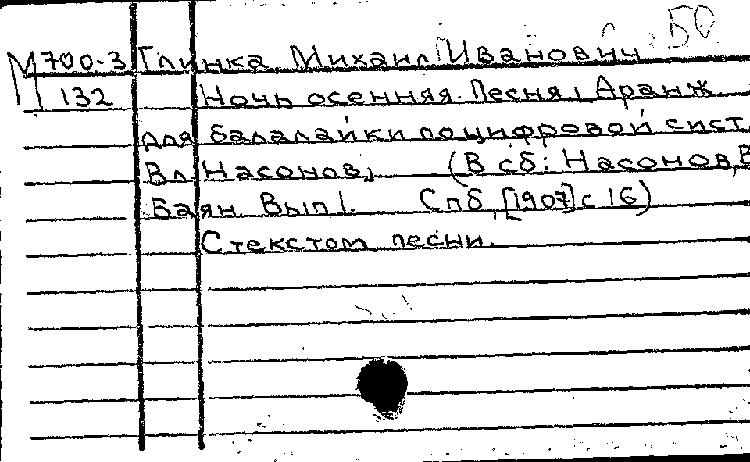 50
М700-3 Глинка Михаил Иванович
132 Ночь осенняя. Песня, Аранж.
для балалайки по цифровой сист.
Вл. Насонов, (В сб: Насонов, В
Баян Вып 1. Спб, [1907] с 16)
С текстом песни.